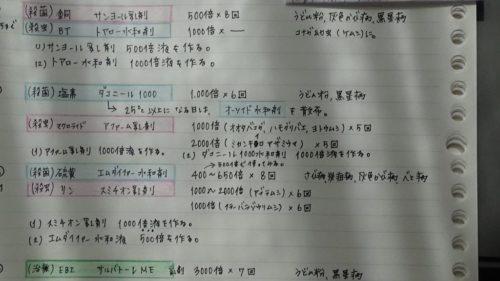 (殺菌) 銅 サンヨール乳剤 500倍×8回 うどん粉, 灰色かび病, 黒星病
(殺虫) BT トアロー水和剤 1000倍×― コナガ幼虫(ケムシ)に。
(1) サンヨール乳剤 500倍液を作る。
(2) トアロー水和剤 1000倍液を作る。
(殺菌) 塩素 ダコニール1000 1,000倍×6回 うどん粉, 黒星病
→25℃以上になる日は, オーソサイド水和剤を散布。
(殺虫) マクロライド アファーム乳剤 1000倍(オオタバコガ, ハモグリバエ, ヨトウムシ)×5回
2000倍(ミカンキイロアザミウマ)×5回
(1) アファーム乳剤 1000倍液を作る。 (2) ダコニール1000水和剤 1000倍液を作る。
(殺菌) 硫黄 エムダイファー水和剤 400~650倍×8回 さび病, 灰色かび病, べと病
(殺虫) リン スミチオン乳剤 1000~2000倍(アブラムシ)×6回
1000倍(チュウレンジハバチ)×6回
(1) スミチオン乳剤 1000倍液を作る。
(2) エムダイファー水和液 500倍を作る。
(治療) EBI サルバトーレME 液剤 3000倍×7回 うどん粉, 黒星病